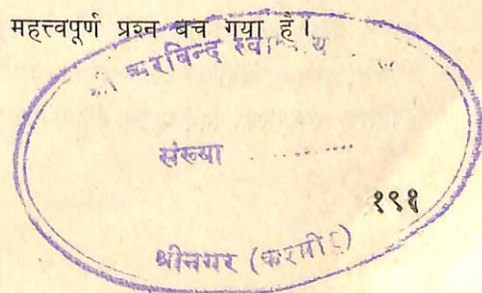 महत्त्वपूर्ण प्रश्न बच गया है।
अरविन्द
संख्या ............
१९१
श्रीनगर (कश्मीर)